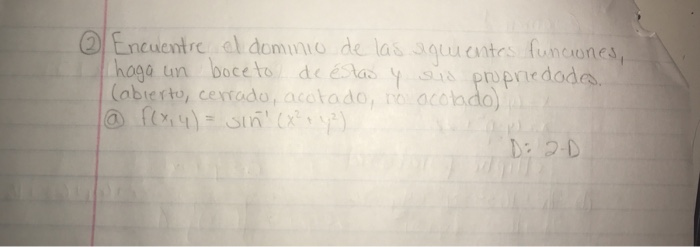 ② Encuentre el dominio de las siguientes funciones,
haga un boceto de éstas y sus propriedades.
(abierto, cerrado, acotado, no acotado)
ⓐ f(x,y) = sin⁻¹ (x² + y²)
D: 2-D